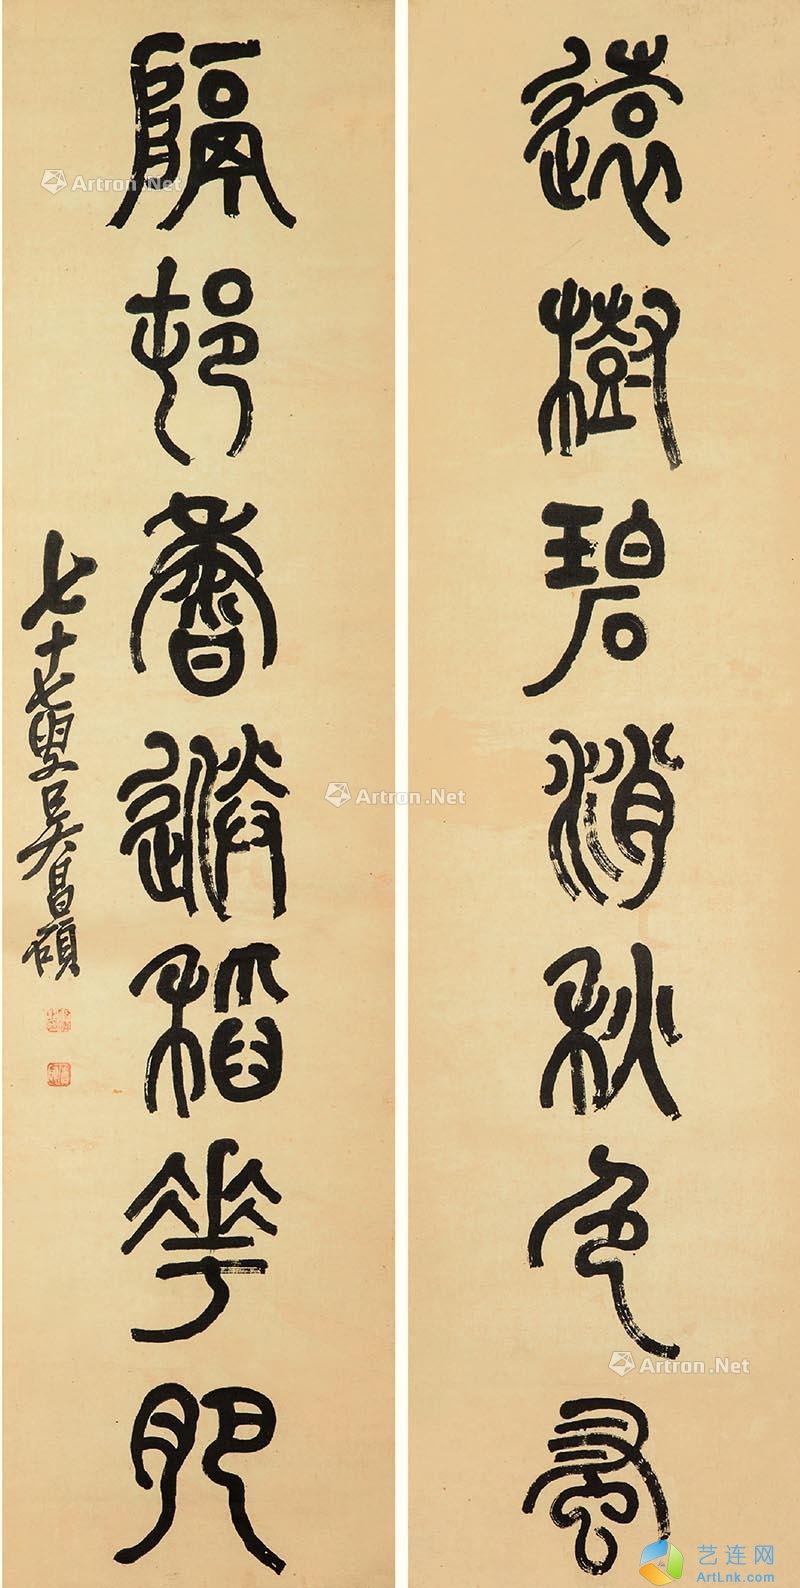 遠樹碧消秋色蚤
隔邨香稻花肥
七十七叟吳昌碩
Artron.Net
Artron.Net
Artron.Net
艺连网
ArtLnk.com